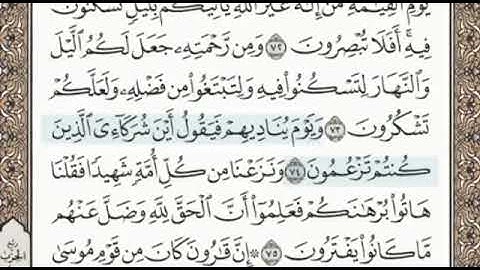 يَوْمِ ٱلْقِيَٰمَةِ مَنْ إِلَٰهٌ غَيْرُ ٱللَّهِ يَأْتِيكُم بِلَيْلٍ تَسْكُنُونَ
فِيهِ ۖ أَفَلَا تُبْصِرُونَ ٧٢ وَمِن رَّحْمَتِهِۦ جَعَلَ لَكُمُ ٱلَّيْلَ
وَٱلنَّهَارَ لِتَسْكُنُوا۟ فِيهِ وَلِتَبْتَغُوا۟ مِن فَضْلِهِۦ وَلَعَلَّكُمْ
تَشْكُرُونَ ٧٣ وَيَوْمَ يُنَادِيهِمْ فَيَقُولُ أَيْنَ شُرَكَآءِىَ ٱلَّذِينَ
كُنتُمْ تَزْعُمُونَ ٧٤ وَنَزَعْنَا مِن كُلِّ أُمَّةٍ شَهِيدًا فَقُلْنَا
هَاتُوا۟ بُرْهَٰنَكُمْ فَعَلِمُوٓا۟ أَنَّ ٱلْحَقَّ لِلَّهِ وَضَلَّ عَنْهُم
مَّا كَانُوا۟ يَفْتَرُونَ ٧٥ ۞ إِنَّ قَٰرُونَ كَانَ مِن قَوْمِ مُوسَىٰ
ربع
الحزب